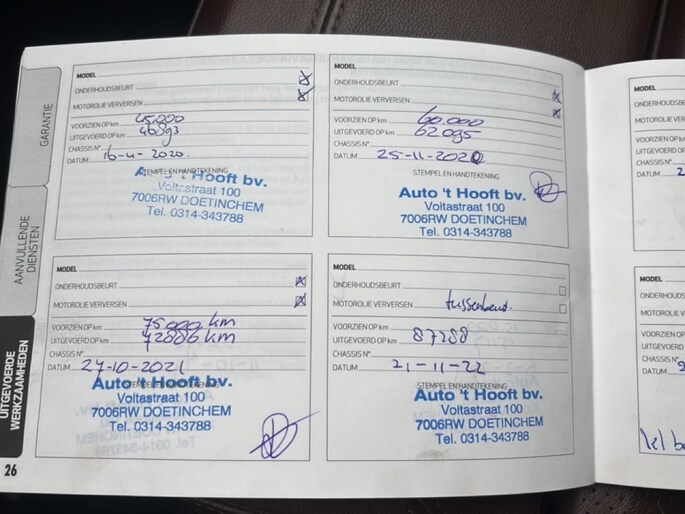 GARANTIE
AANVULLENDE
DIENSTEN
UITGEVOERDE
WERKZAAMHEDEN
26
MODEL
ONDERHOUDSBEURT
MOTOROLIE VERVERSEN
VOORZIEN OP km 45.000
UITGEVOERD OP km 46893
CHASSIS N°
DATUM 16-4-2020.
STEMPEL EN HANDTEKENING
Auto 't Hooft bv.
Voltastraat 100
7006RW DOETINCHEM
Tel. 0314-343788
MODEL
ONDERHOUDSBEURT
MOTOROLIE VERVERSEN
VOORZIEN OP km 60.000
UITGEVOERD OP km 62095
CHASSIS N°
DATUM 25-11-2020
STEMPEL EN HANDTEKENING
Auto 't Hooft bv.
Voltastraat 100
7006RW DOETINCHEM
Tel. 0314-343788
MODEL
ONDERHOUDSBEURT
MOTOROLIE VERVERSEN
VOORZIEN OP km 75.000 km
UITGEVOERD OP km 72886 km
CHASSIS N°
DATUM 27-10-2021
Auto 't Hooft bv.
Voltastraat 100
7006RW DOETINCHEM
Tel. 0314-343788
MODEL
ONDERHOUDSBEURT
MOTOROLIE VERVERSEN tussenbeurt.
VOORZIEN OP km
UITGEVOERD OP km 87288
CHASSIS N°
DATUM 21-11-22
STEMPEL EN HANDTEKENING
Auto 't Hooft bv.
Voltastraat 100
7006RW DOETINCHEM
Tel. 0314-343788
MODEL
ONDERHOUDSB
MOTOROLIE V
VOORZIEN OP
UITGEVOERD OP
CHASSIS N°
DATUM 2
MODEL
ONDERHOUDS
MOTOROLIE V
VOORZIEN OP
UITGEVOERD O
CHASSIS N°
DATUM